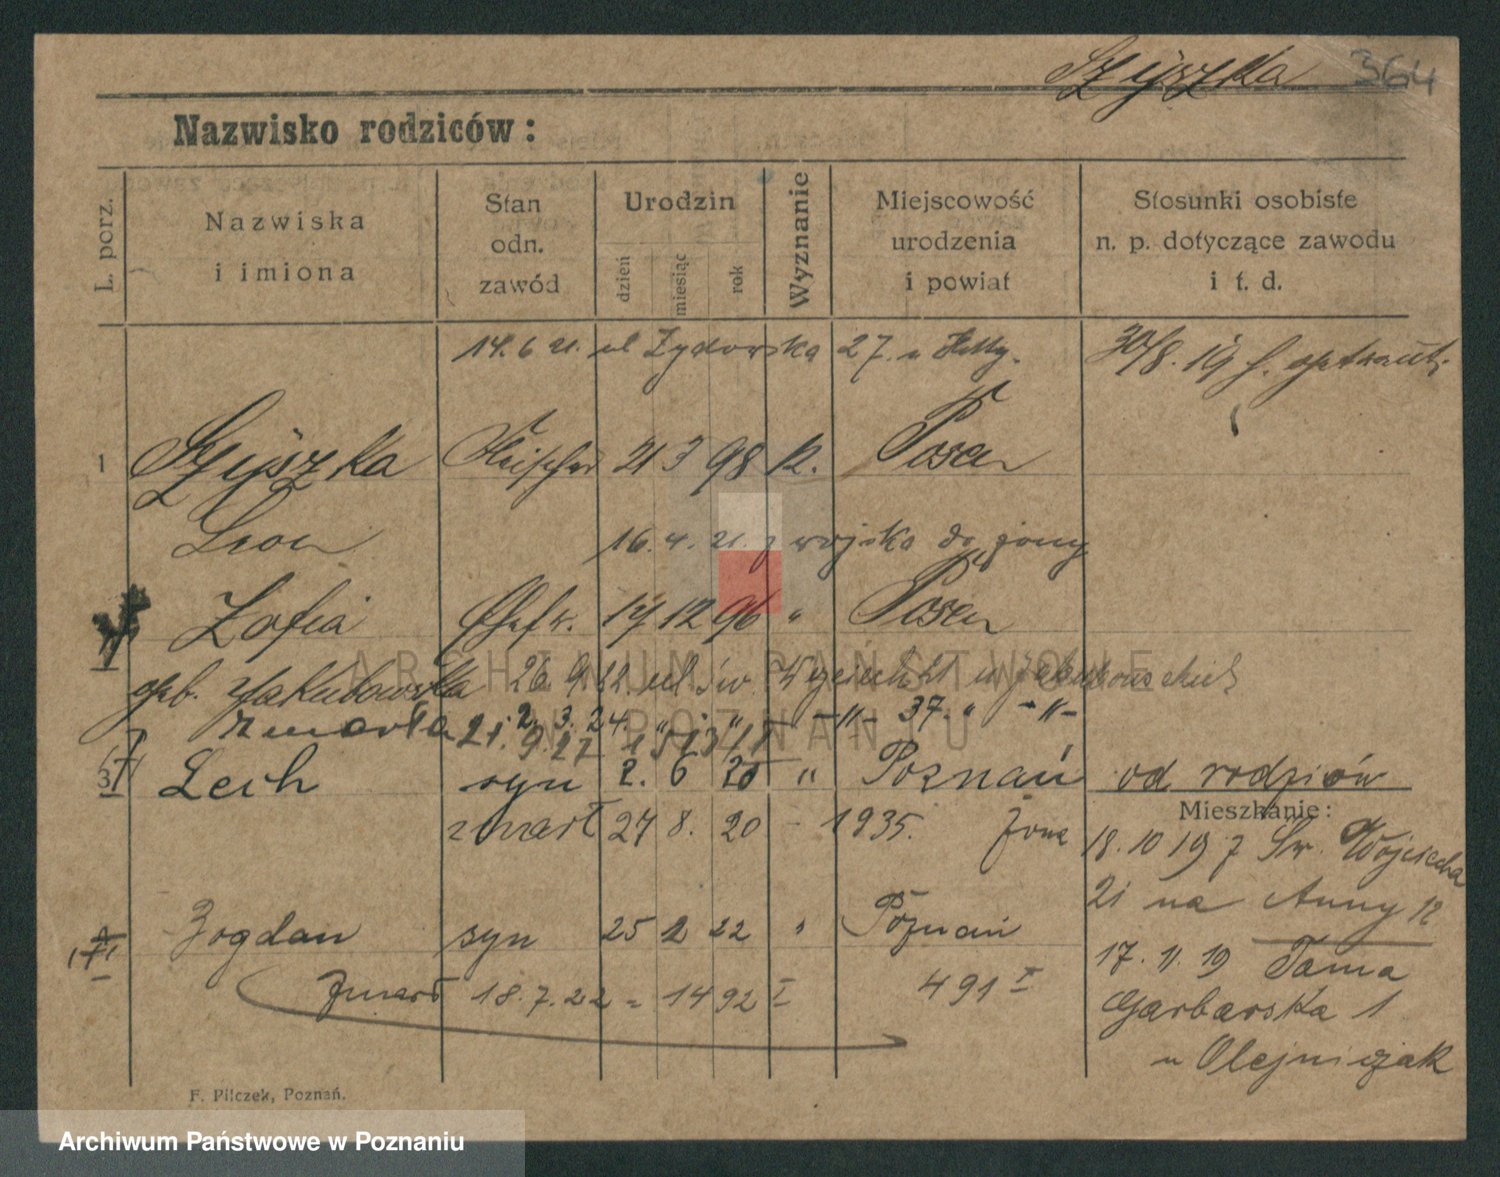 Szyszka 364
Nazwisko rodziców:
L. porz.
Nazwiska
i imiona
Stan
odn.
zawód
Urodzin
dzień
miesiąc
rok
Wyznanie
Miejscowość
urodzenia
i powiat
Stosunki osobiste
n. p. dotyczące zawodu
i t. d.
14.6 21. ul Żydowska 27. u
30/8. 19 f.
1 Szyszka Fleischer 21 3 98 K. Posen
Leon 16. 4. 21. z wojska do żony
Zofia Ehefr. 17 12 96 " Posen
geb. Jakubowska 26 9 22. ul. św. Wojciecha u
zmarła 2. 3. 24. " " -"- 37. " -"-
21. 9. 27
3 Lech syn 2. 6 20 " Poznań od rodziców
zmarł 27 8. 20 - 1935. żona
Mieszkanie:
18. 10 19 z Św. Wojciecha
21 na Anny 12
Bogdan syn 25 2 22 " Poznań
17. 11. 19 Tama
Garbarska 1
u Olejniczak
Zmarł 18. 7. 22 = 1492 I 491 I
F. Pilczek, Poznań.
ARCHIWUM PAŃSTWOWE
W POZNANIU
Archiwum Państwowe w Poznaniu